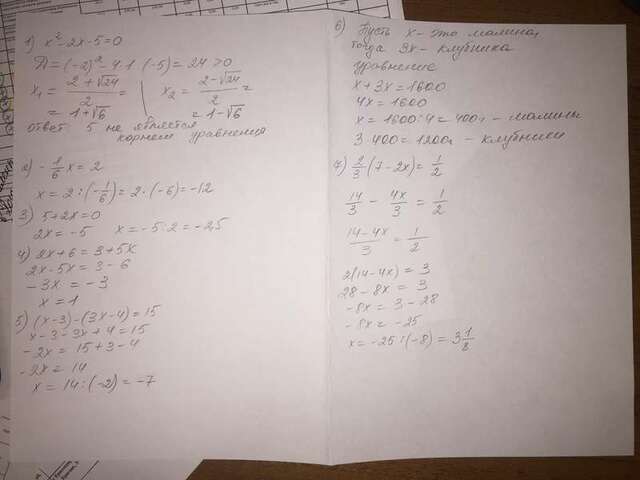 1) x² - 2x - 5 = 0
Д = (-2)² - 4·1·(-5) = 24 > 0
x₁ = (2 + √24)/2 = 1 + √6
x₂ = (2 - √24)/2 = 1 - √6
ответ 5 не является
корнем уравнения
2) -1/6 x = 2
x = 2 : (-1/6) = 2 · (-6) = -12
3) 5 + 2x = 0
2x = -5 x = -5 : 2 = -2,5
4) 2x + 6 = 3 + 5x
2x - 5x = 3 - 6
-3x = -3
x = 1
5) (x-3) - (3x-4) = 15
x - 3 - 3x + 4 = 15
-2x = 15 + 3 - 4
-2x = 14
x = 14 : (-2) = -7
6) Пусть x - это малина,
тогда 3x - клубника
уравнение
x + 3x = 1600
4x = 1600
x = 1600 : 4 = 400 - малины
3·400 = 1200 - клубники
7) 2/3 (7 - 2x) = 1/2
14/3 - 4x/3 = 1/2
(14 - 4x)/3 = 1/2
2(14 - 4x) = 3
28 - 8x = 3
-8x = 3 - 28
-8x = -25
x = -25 : (-8) = 3 1/8